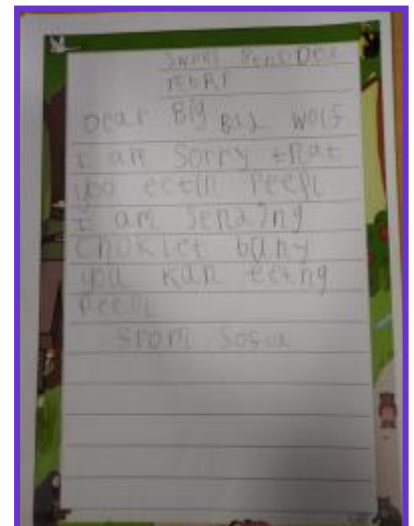 Dear Big Bad Wolf
I am Sorry that
you eetin Peepl
I am Sending
Choklet buny
you kan eeting
Peepl
from Sofia